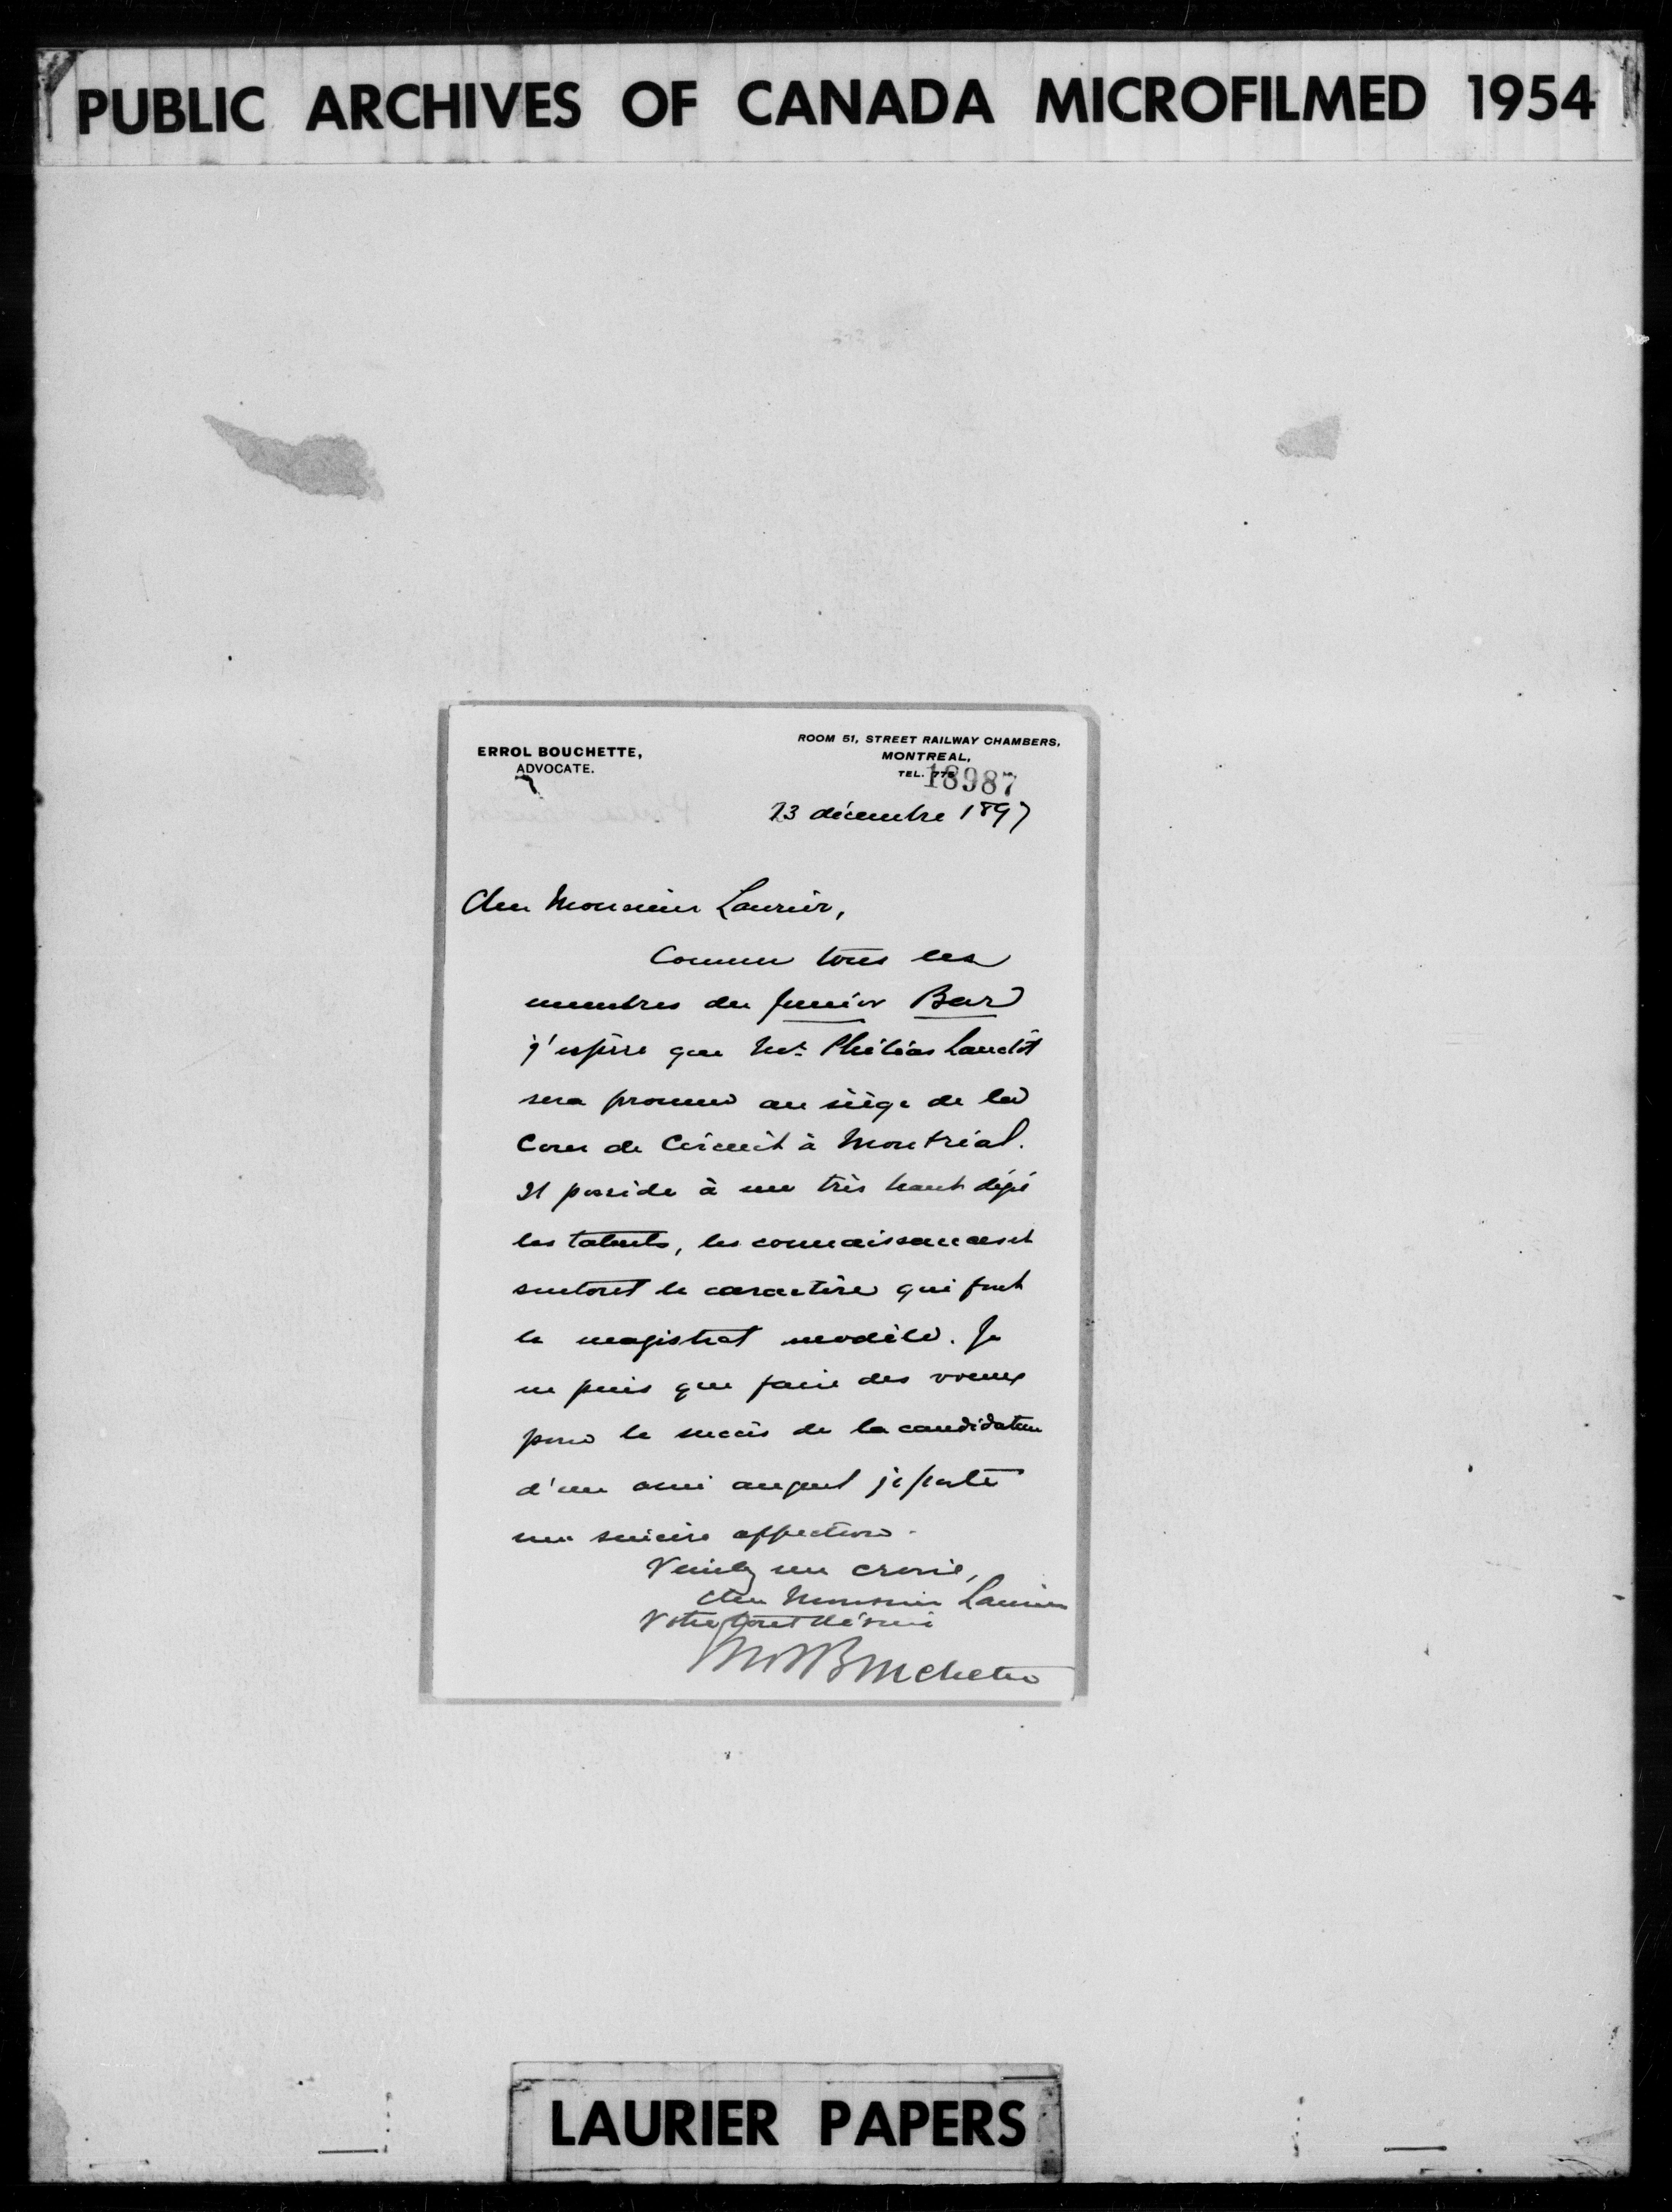 PUBLIC ARCHIVES OF CANADA MICROFILMED 1954
ERROL BOUCHETTE,
ADVOCATE.
ROOM 51, STREET RAILWAY CHAMBERS,
MONTREAL,
TEL.
18987
23 décembre 1897
Cher Monsieur Laurier,
Comme tous les
membres du Junior Bar
j'espère que Mr. Philéas
sera promu au siège de la
Cour de Circuit à Montréal.
Il possède à un très haut degré
les talents, les connaissances et
surtout le caractère qui font
le magistrat modèle. Je
ne puis que faire des voeux
pour le succès de la candidature
d'un ami auquel je porte
une sincère affection.
Veuillez me croire,
Cher Monsieur Laurier
Votre tout dévoué
Bouchette
LAURIER PAPERS